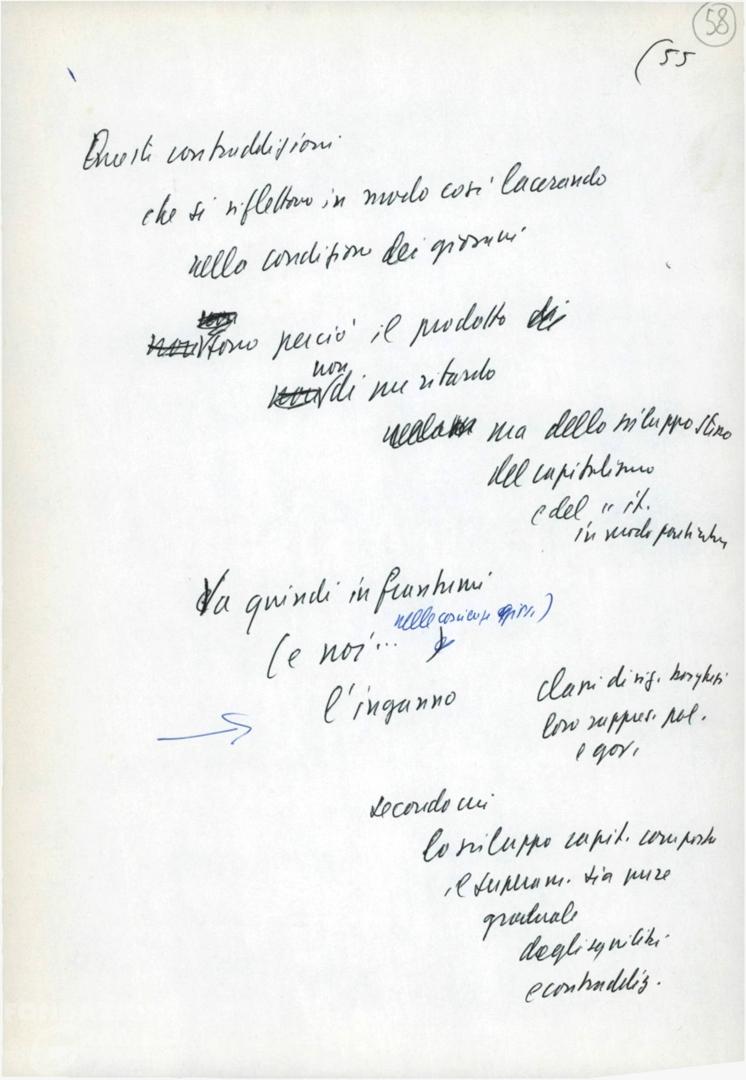 58
(55
Queste contraddizioni
che si riflettono in modo così lacerando
nella condizione dei giovani
sono perciò il prodotto di
non
di un ritardo
ma dello sviluppo stesso
del capitalismo
e del " it.
in modo particolare
Va quindi in frantumi
nelle coscienze giov.)
(e noi...
l'inganno
classi dirig. borghesi
loro rappres. pol.
e gov.
secondo cui
lo sviluppo capit. comporta
il superam. sia pure
graduale
degli squilibri
e contraddiz.